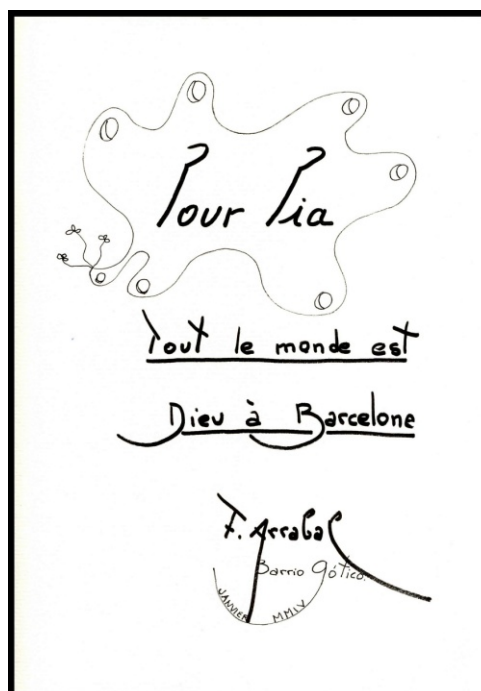 Pour Pia
Tout le monde est
Dieu à Barcelone
F. Arrabal
Barrio gótico.
JANVIER MMIV